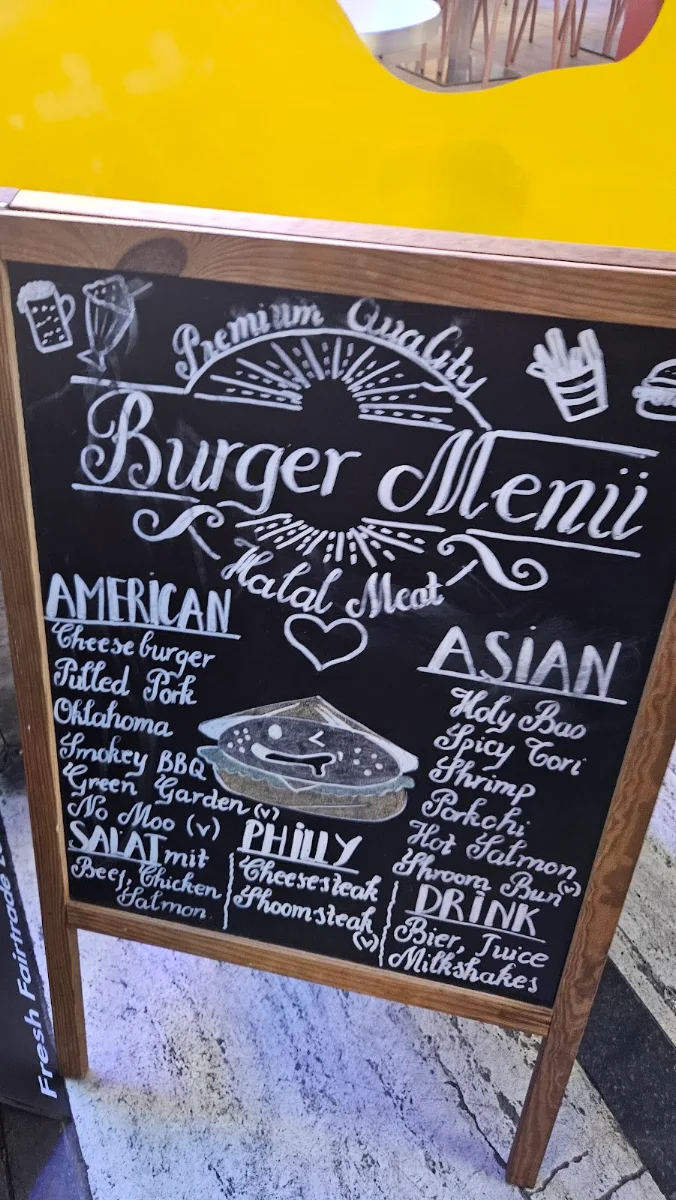 Premium Quality
Burger Menü
Halal Meat
AMERICAN
Cheeseburger
Pulled Pork
Oklahoma
Smokey BBQ
Green Garden (v)
No Moo (v)
ASIAN
Holy Bao
Spicy Tori
Shrimp
Porkchi
Hot Salmon
Shroom Bun (v)
SALAT mit
Beef, Chicken
Salmon.
PHILLY
Cheesesteak
Shoomsteak
(v)
DRINK
Bier, Juice
Milkshakes
Fresh Fairtrade